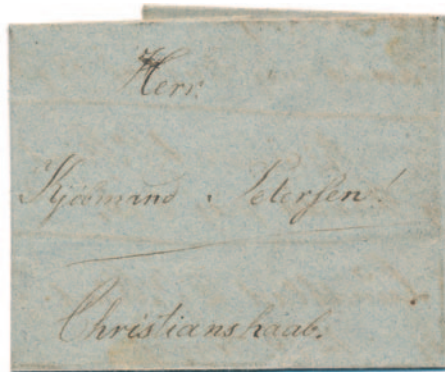 Herr.
Kjøbmand Petersen!
Christianshaab.